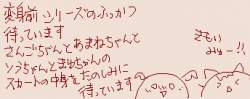 変身前シリーズのふっかつ
待っています
さんごちゃんとあまねちゃんと
そらちゃんとましろちゃんの
スカートの中身をたのしみに
待っています
きもい
みゅー!!